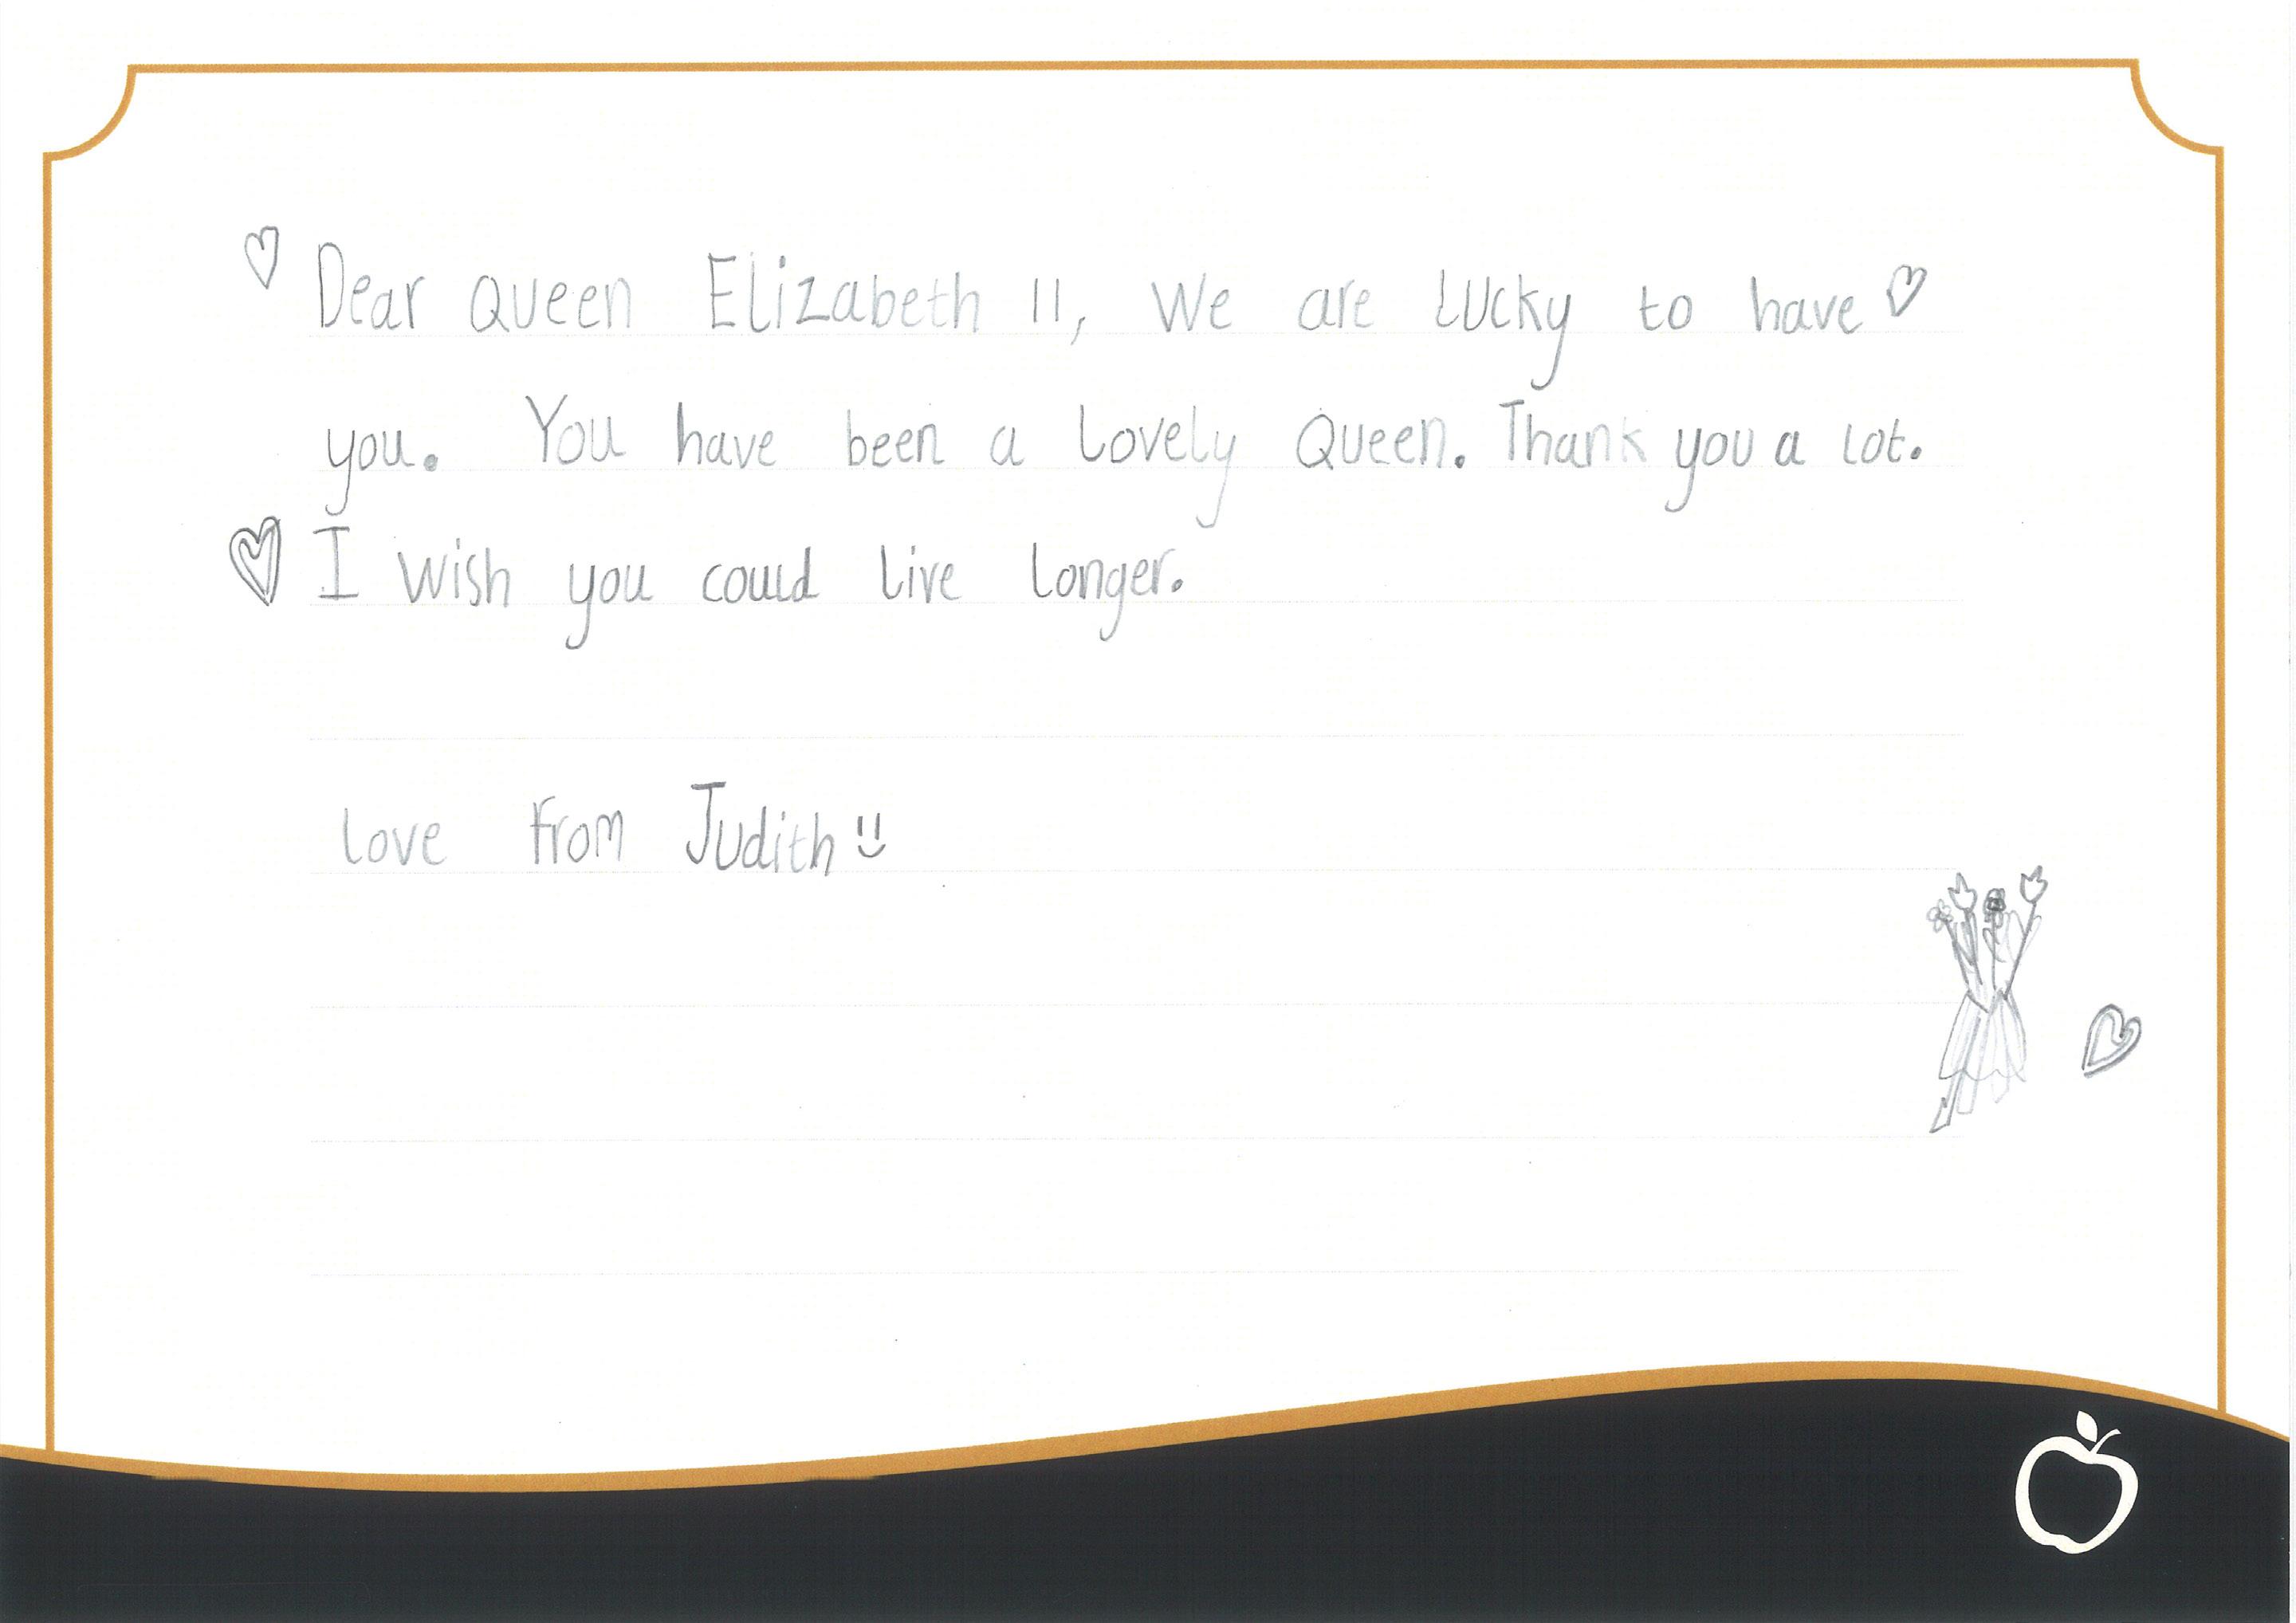 Dear Queen Elizabeth II, We are lucky to have
you. You have been a lovely Queen. Thank you a lot.
I wish you could live longer.
love from Judith